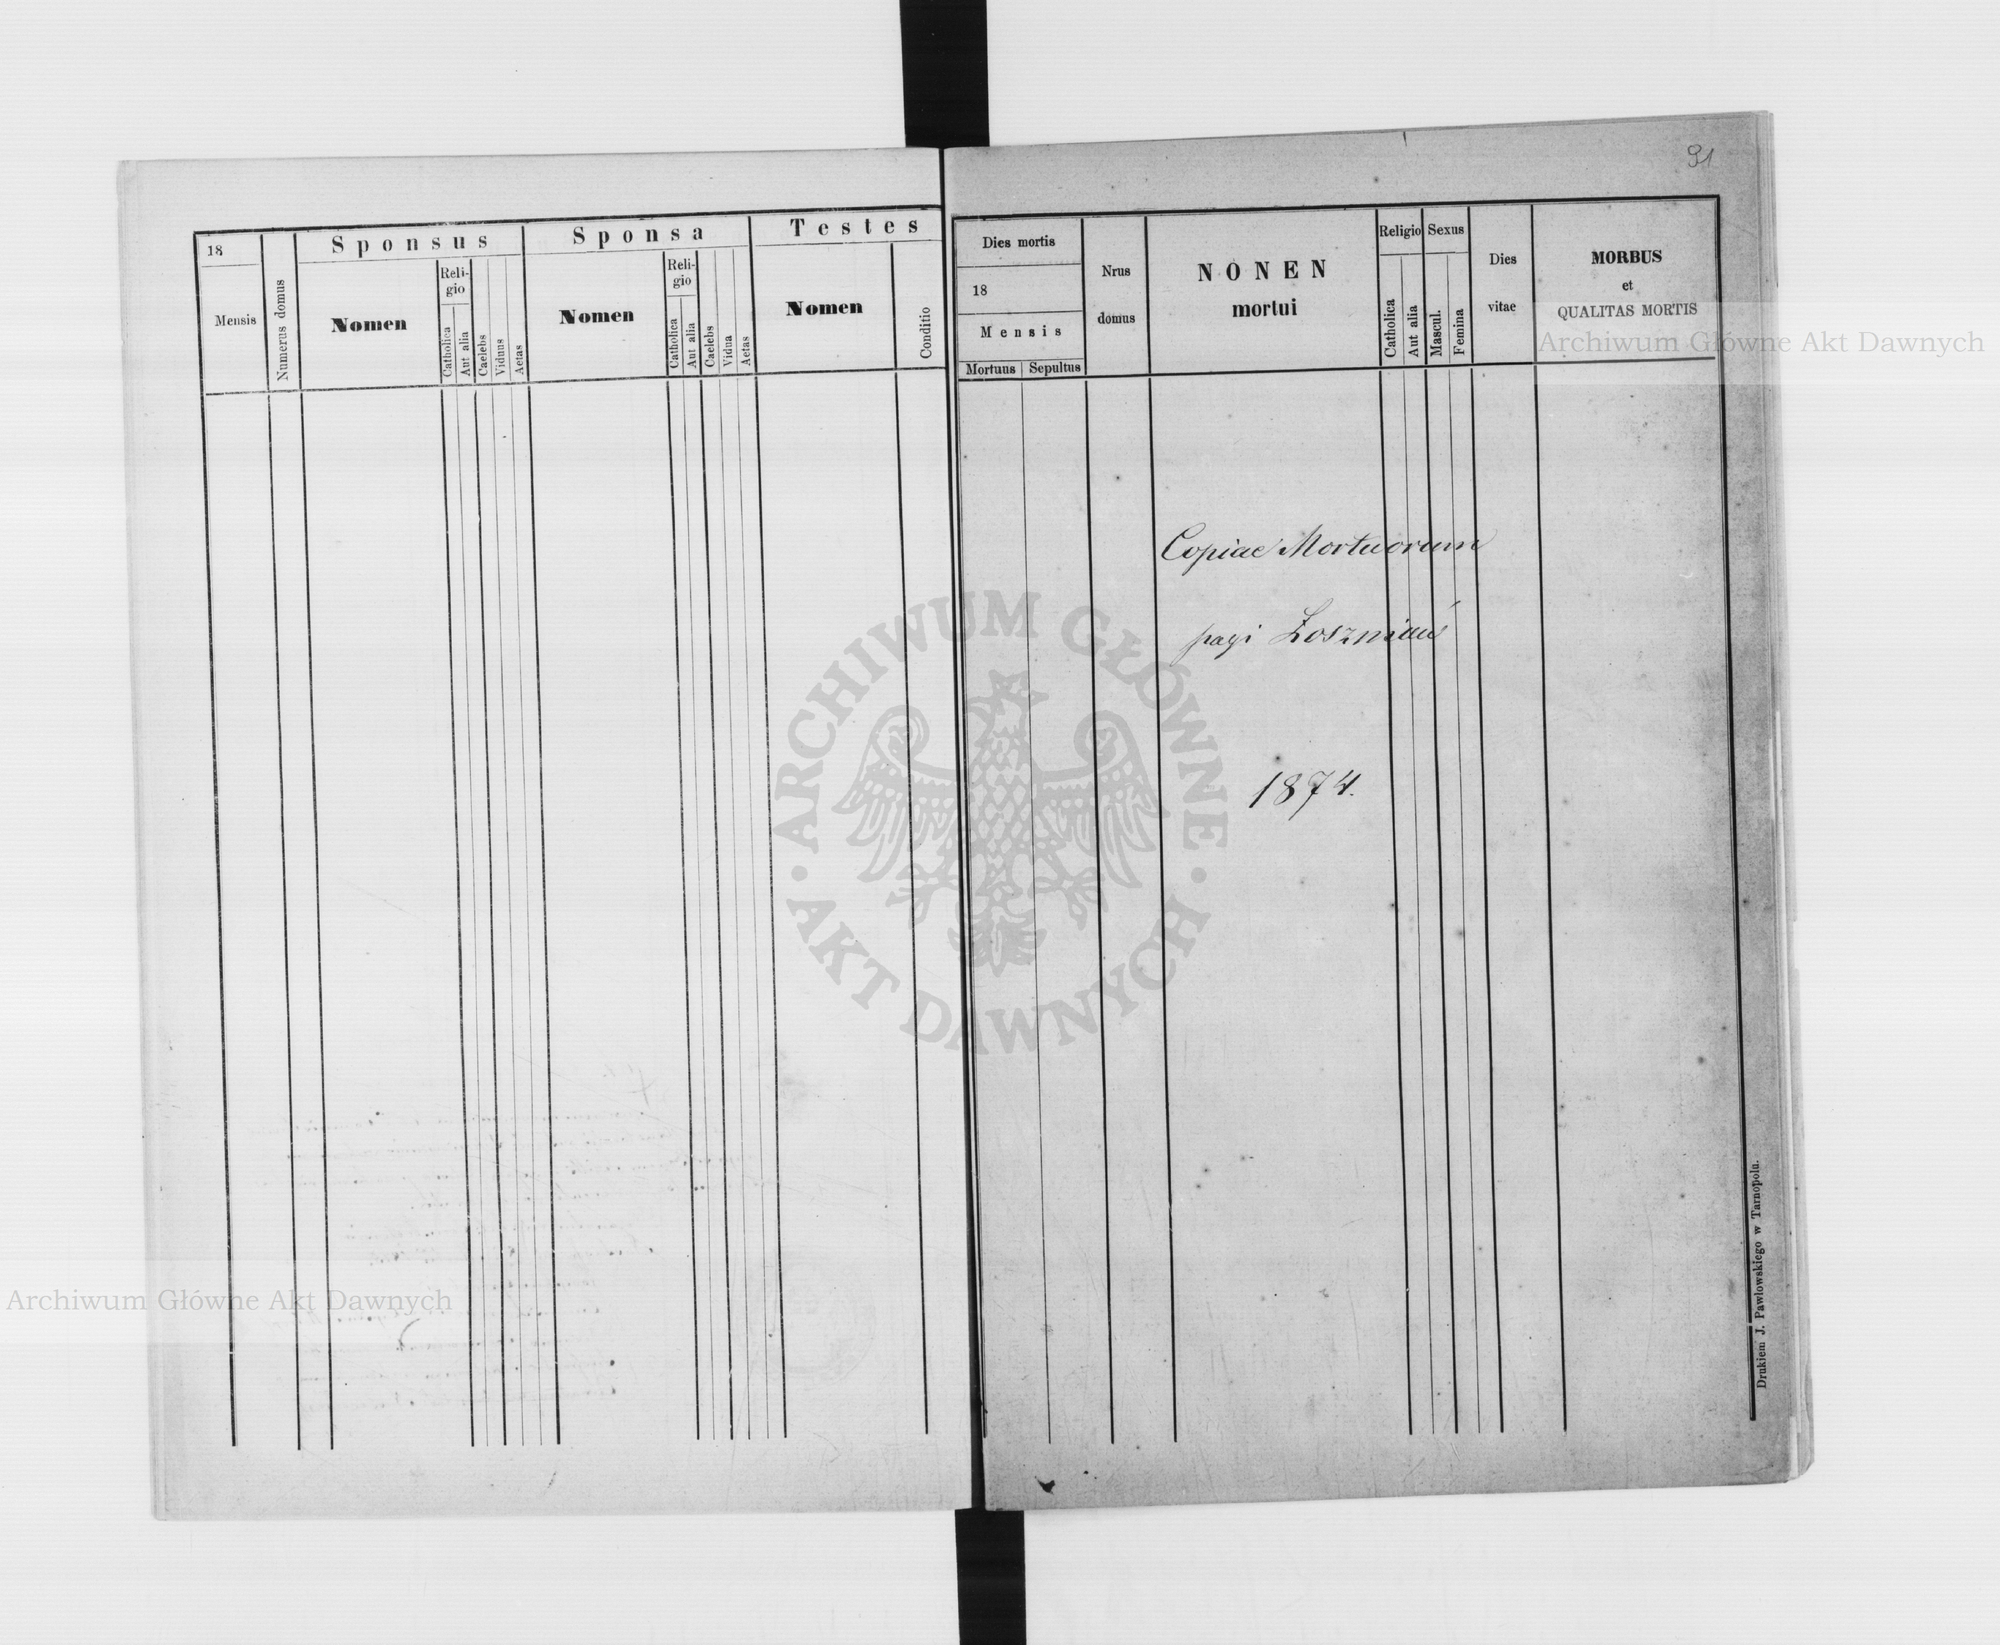 91
18
Mensis
Numerus domus
Sponsus
Nomen
Reli-
gio
Catholica
Aut alia
Caelebs
Viduus
Aetas
Sponsa
Nomen
Reli-
gio
Catholica
Aut alia
Caelebs
Vidua
Aetas
Testes
Nomen
Conditio
Dies mortis
18
Mensis
Mortuus
Sepultus
Nrus
domus
NONEN
mortui
Religio
Catholica
Aut alia
Sexus
Mascul.
Femina
Dies
vitae
MORBUS
et
QUALITAS MORTIS
Copiae Mortuorum
pagi Łoszniów
1874.
Drukiem J. Pawłowskiego w Tarnopolu.
Archiwum Główne Akt Dawnych
Archiwum Główne Akt Dawnych
ARCHIWUM GŁÓWNE
AKT DAWNYCH